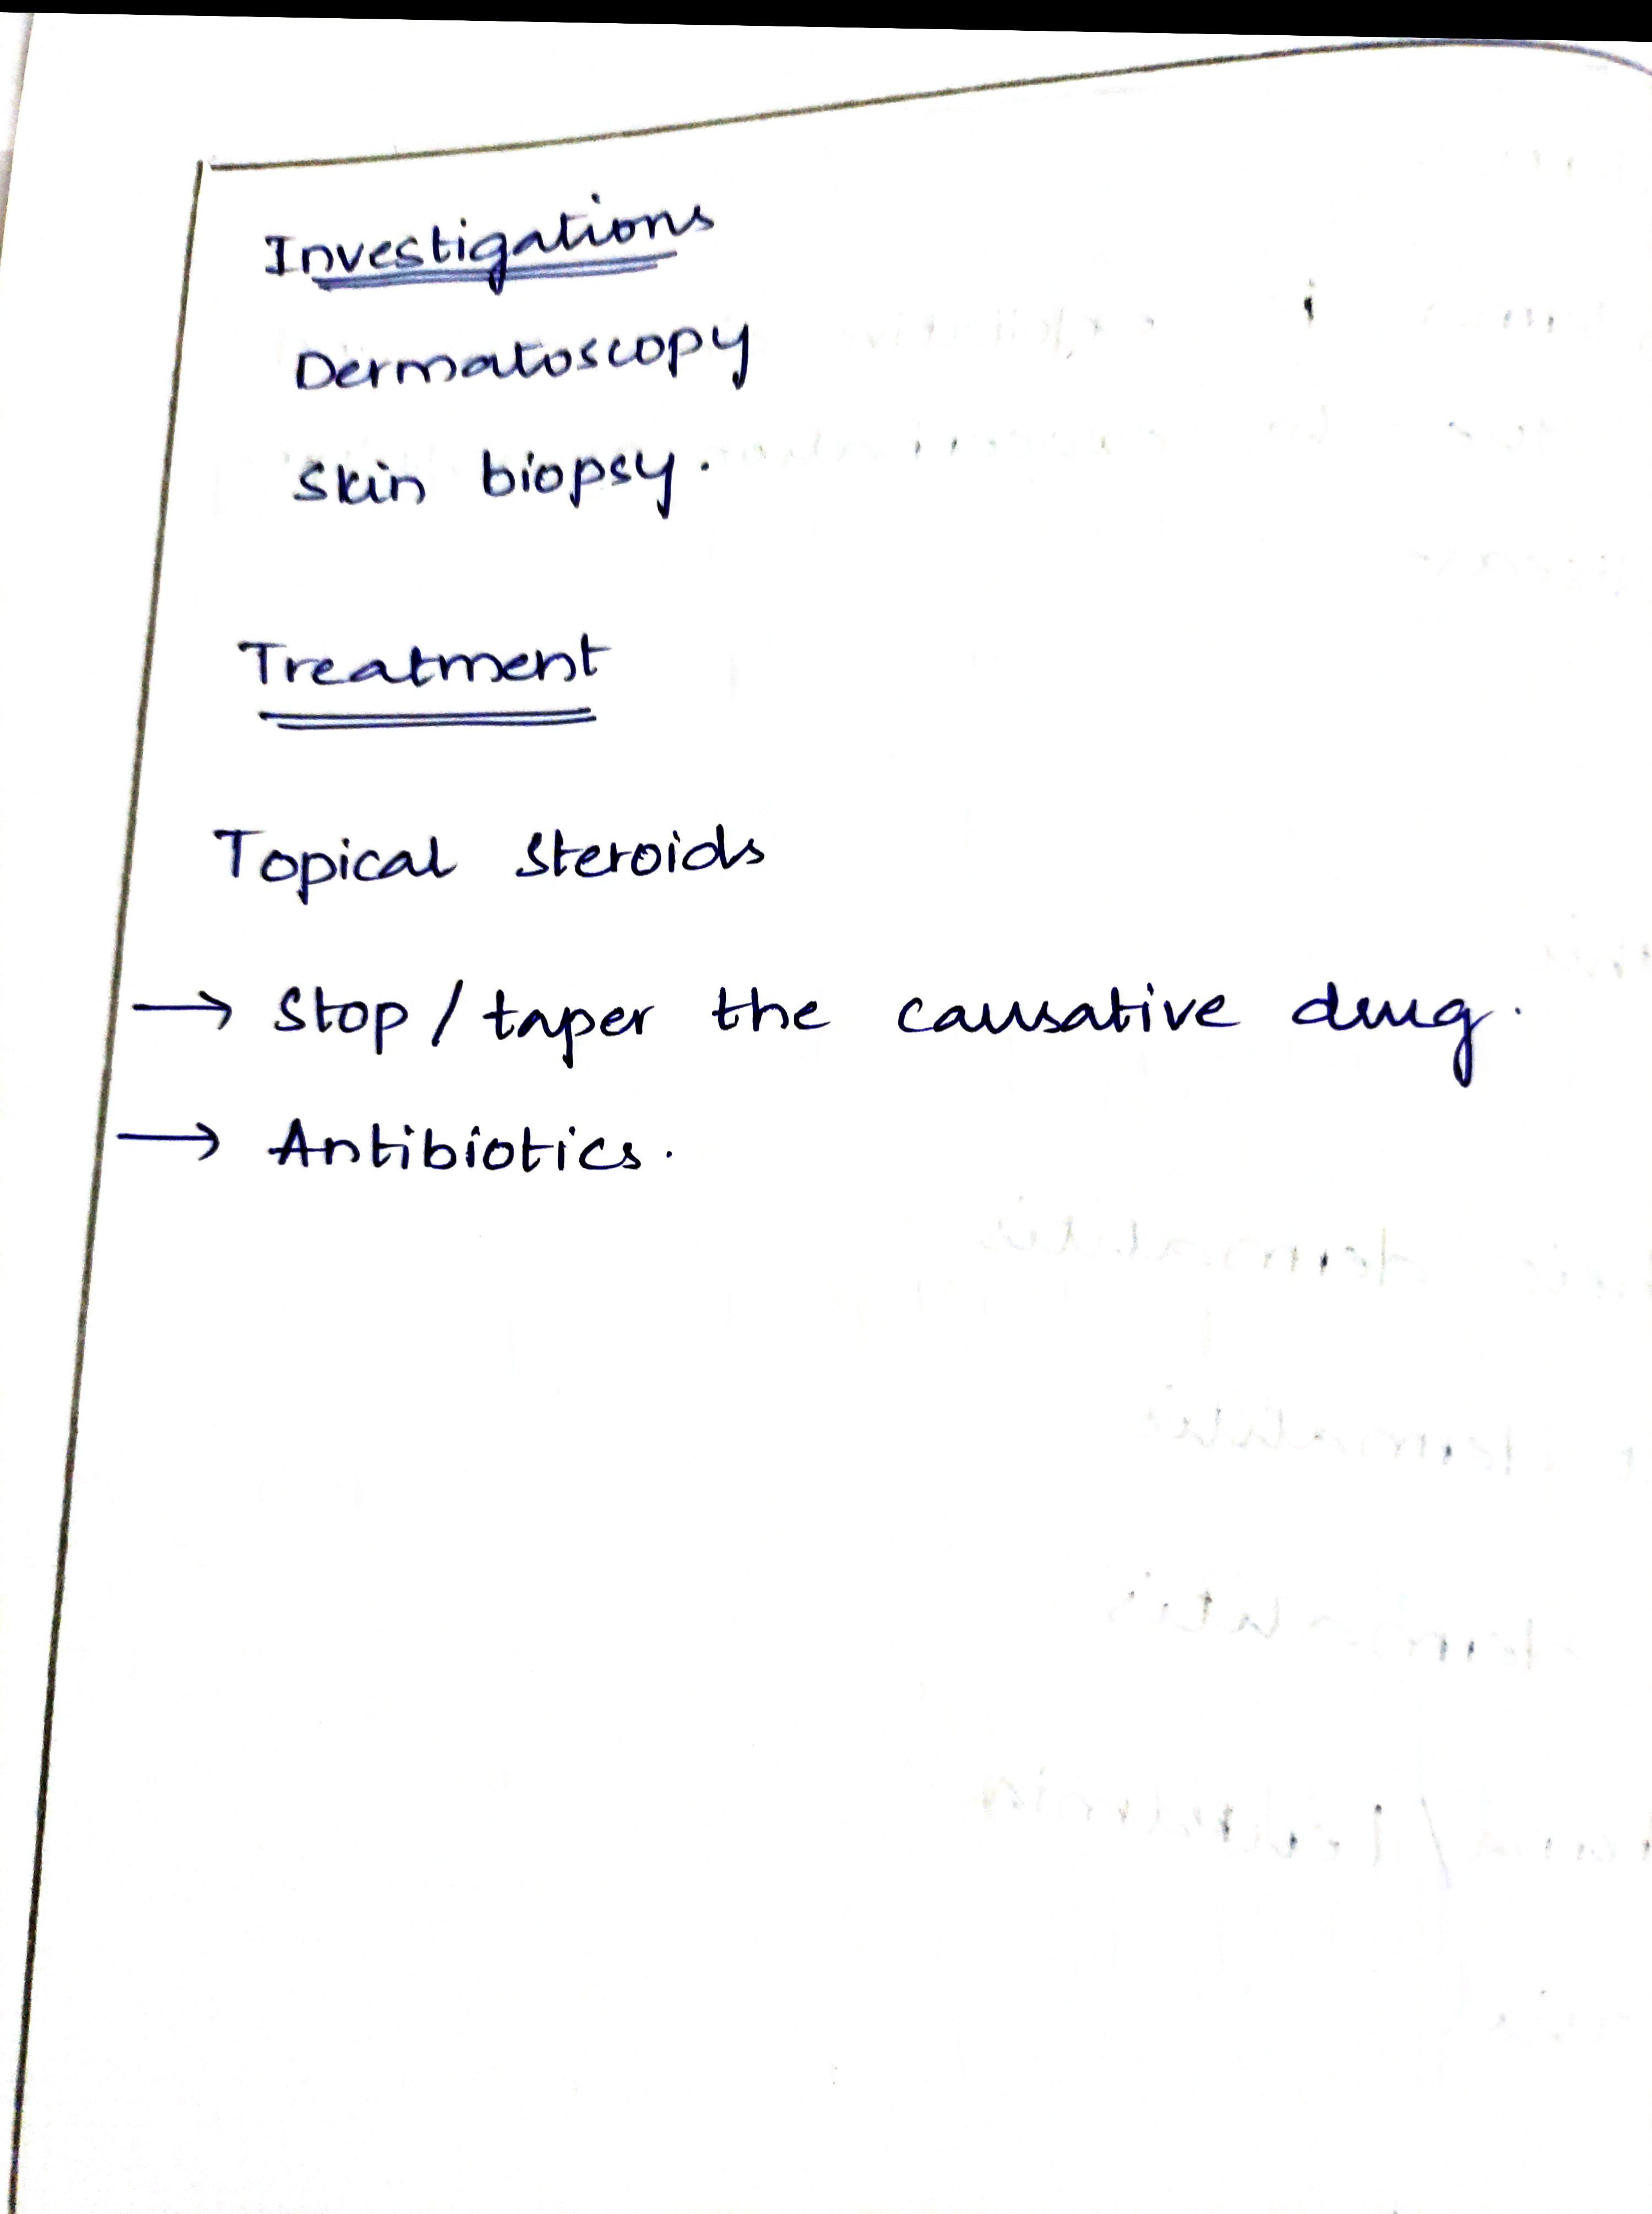 Investigations
Dermatoscopy
Skin biopsy.
Treatment
Topical steroids
→ Stop / taper the causative drug.
→ Antibiotics.